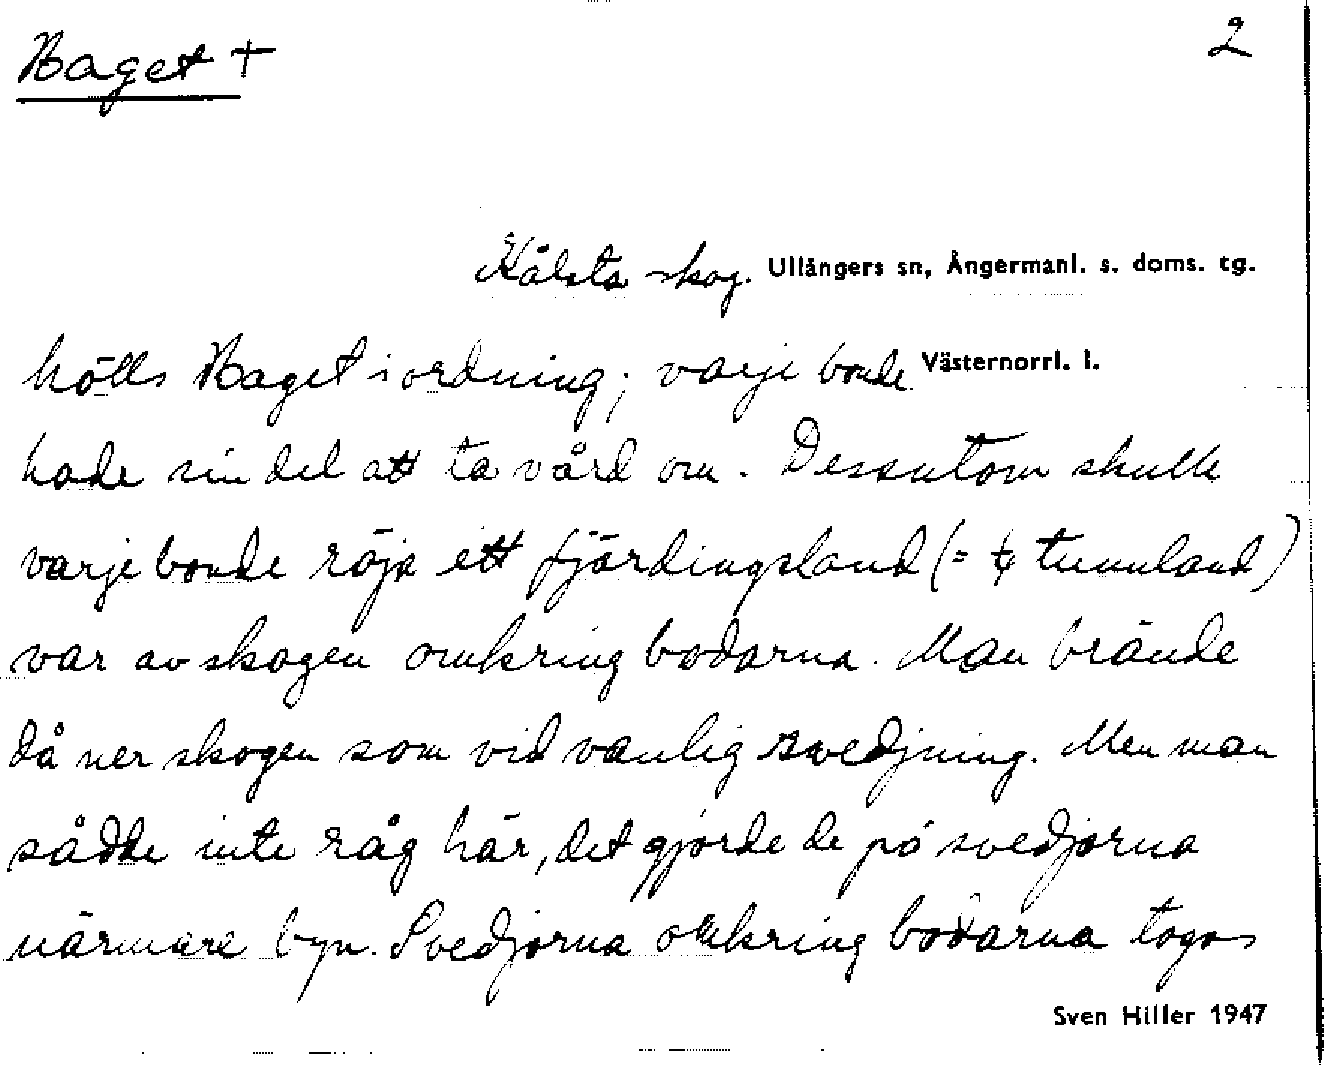 Haget + 2
Kälsta skog. Ullångers sn, Ångermanl. s. doms. tg.
hölls Haget i ordning; varje bonde Västernorrl. l.
hade sin del att ta vård om. Dessutom skulle
varje bonde röja ett fjärdingsland (= ¼ tunnland)
var av skogen omkring bodarna. Man brände
då ner skogen som vid vanlig svedjning. Men man
sådde inte råg här, det gjorde de på svedjorna
närmare byn. Svedjorna omkring bodarna togos
Sven Hiller 1947